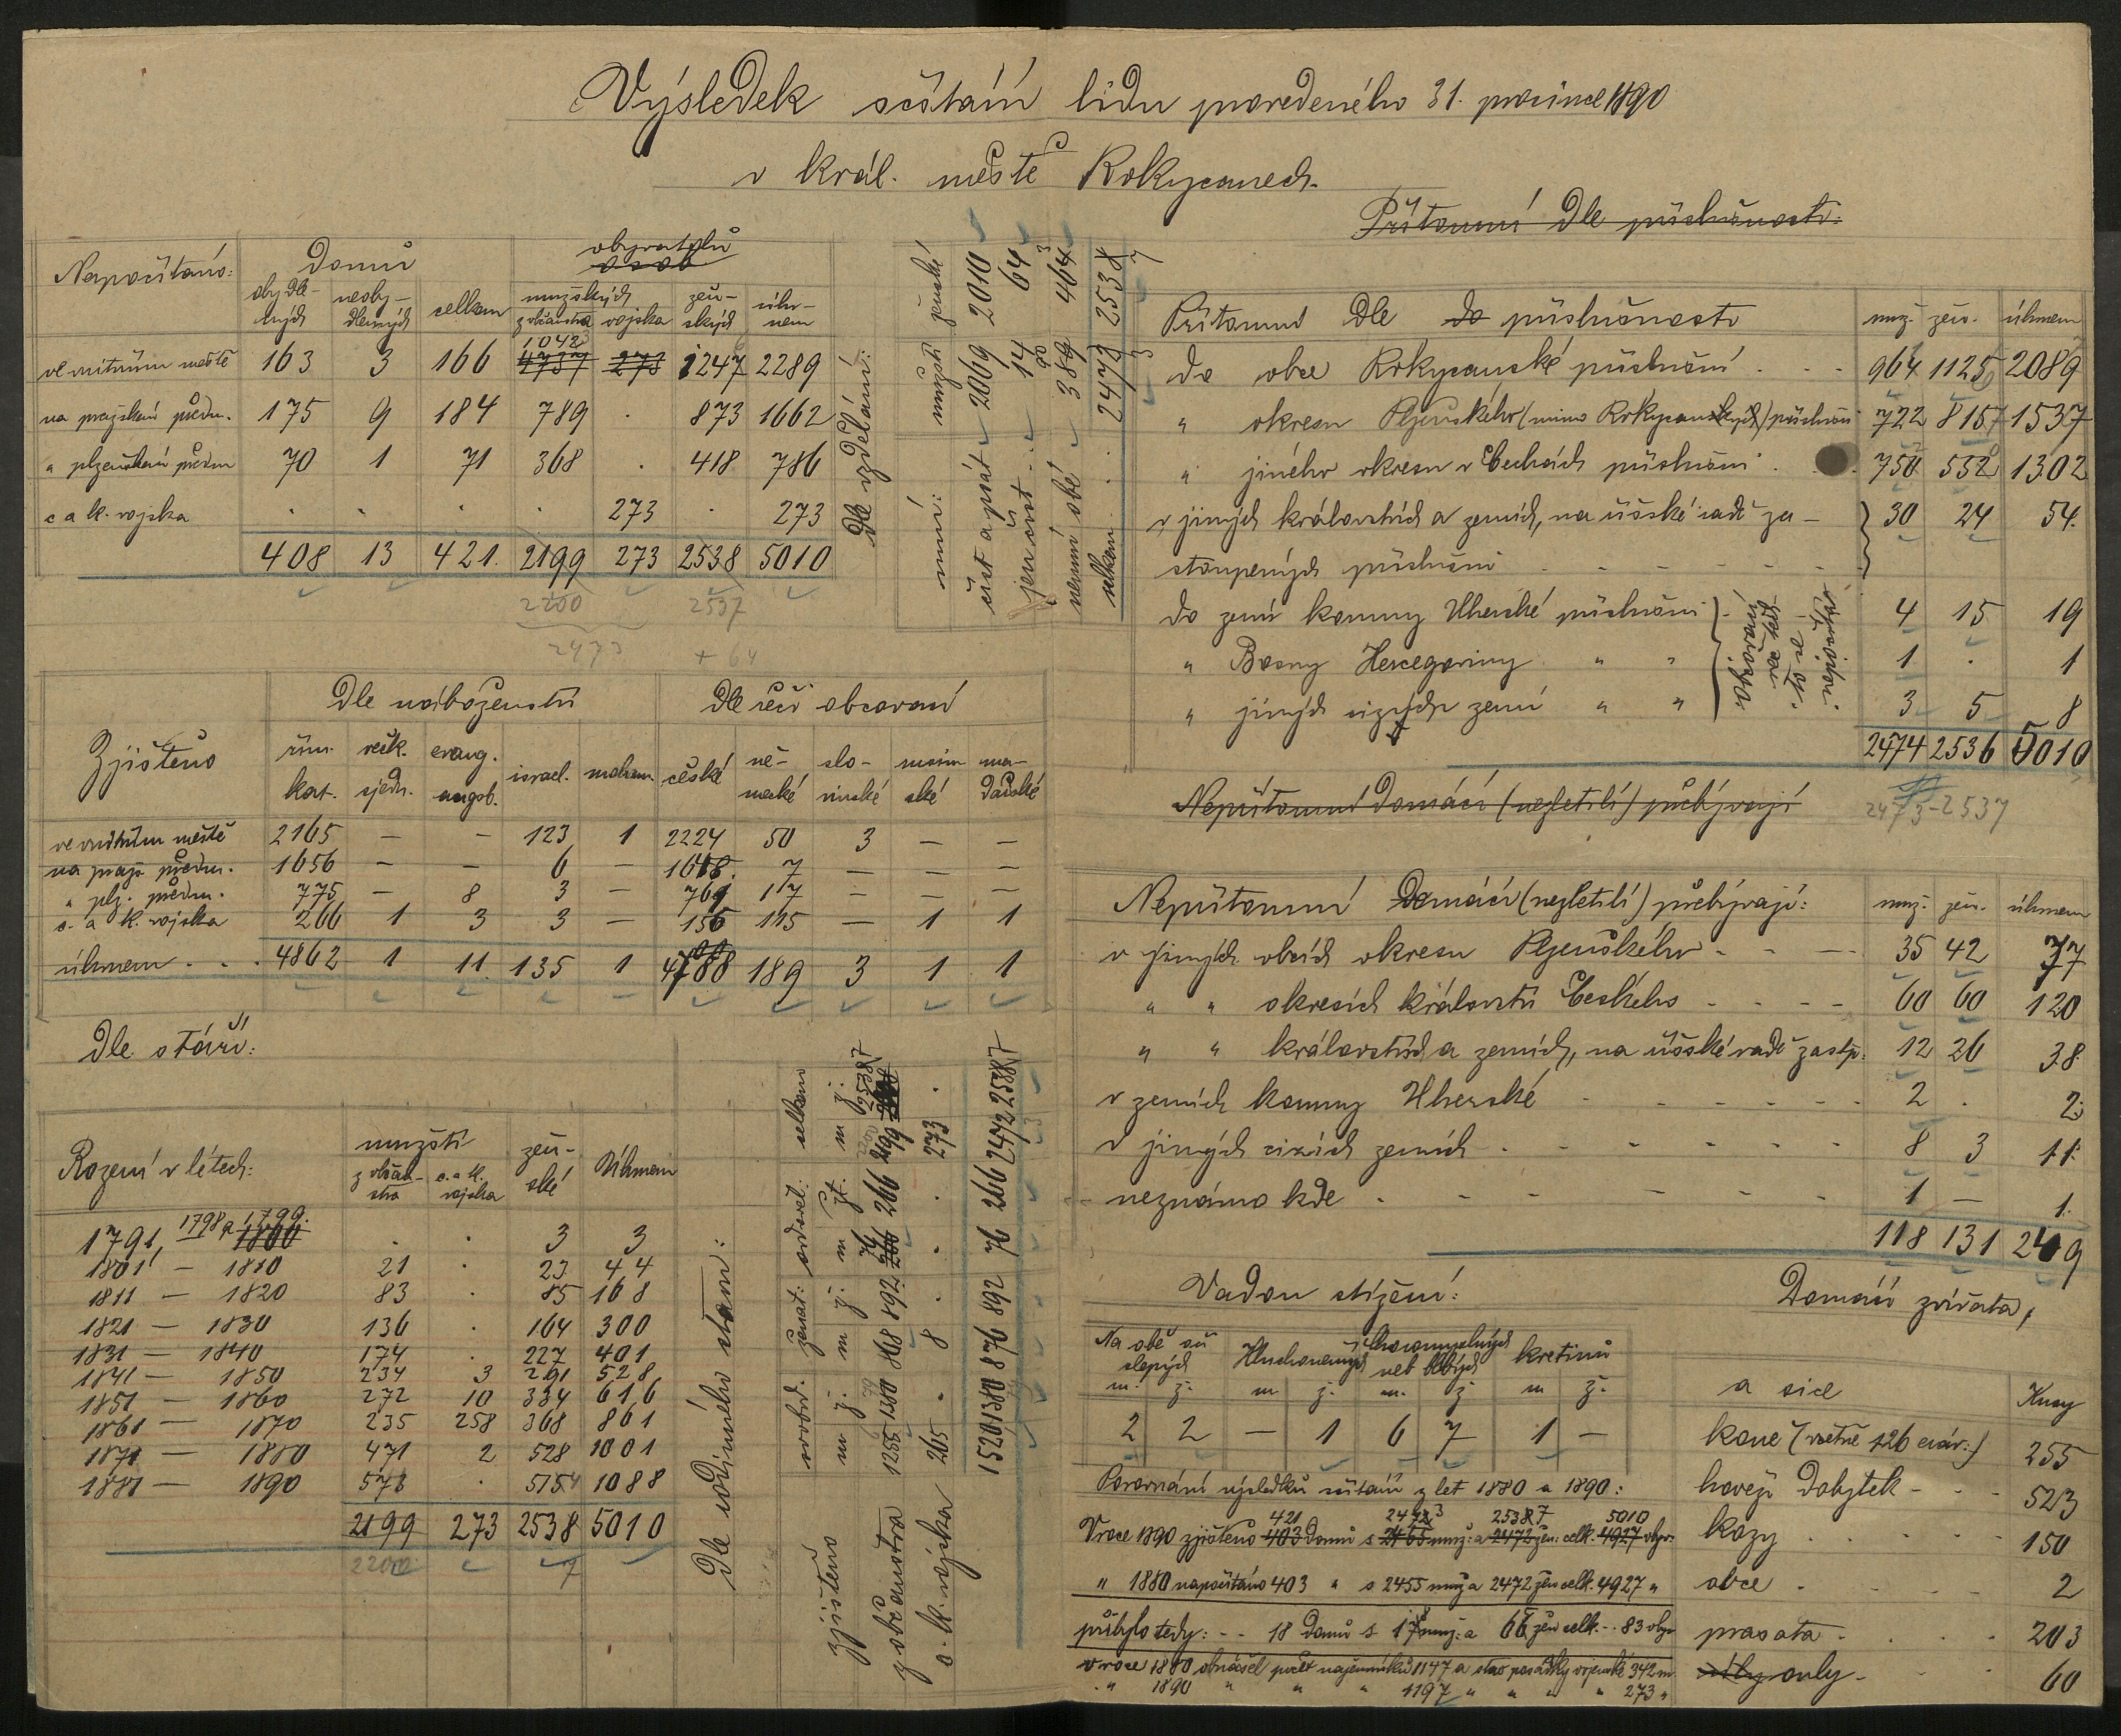 Výsledek sčítání lidu provedeného 31. prosince 1890
v král. městě Rokycanech.
Napočítáno:
domů
obyvatelů
osob
obydle-
ných
neoby-
dlených
celkem
mužských
z občanstva
vojska
žen-
ských
úhr-
nem
ve vnitřním městě 163 3 166 1042 273 1247 2289
na pražském předm. 175 9 184 789 . 873 1662
" plzeňském předm 70 1 71 368 . 418 786
c a k. vojska . . . . 273 . 273
408 13 421. 2199 273 2538 5010
2200 2537
2473 + 64
Dle vzdělání:
umí: mužští ženské
číst a psát 2069 2010
jen číst 14 64
neumí obé 389 464
celkem 2472 2538
Zjištěno
Dle náboženství
Dle řeči obcovací
řím. kat.
řeck. sjedn.
evang. augsb.
israel.
moham.
české
ně-
mecké
slo-
vinské
rusín
ské
ma-
ďarské
ve vnitřním městě 2165 — — 123 1 2224 50 3 — —
na praž. předm. 1656 — — 6 — 1648. 7 — — —
" plz. předm. 775 — 8 3 — 761 17 — — —
c. a k. vojska 266 1 3 3 — 156 115 — 1 1
úhrnem . . . 4862 1 11 135 1 4788 189 3 1 1
Dle stáří:
Rození v létech:
mužští
z občan-
stva
c. a k.
vojska
žen-
ské
Úhrnem
1791, 1798 a 1799. 1800 . . 3 3
1801 — 1810 21 . 23 44
1811 — 1820 83 . 85 168
1821 — 1830 136 . 164 300
1831 — 1840 174 . 227 401
1841 — 1850 234 3 291 528
1851 — 1860 272 10 334 616
1861 — 1870 235 258 368 861
1871 — 1880 471 2 528 1001
1881 — 1890 573 . 515 1088
2199 273 2538 5010
2200 7
Dle rodinného stavu:
zjištěno
svobod. ženat: ovdověl: celkem
m ž. m ž. m ž. m ž.
z občanstva 1255 1380 868 892 76 266 2199 2538
c. k. vojska 265 . 8 . . . 273 .
1520 1380 876 892 76 266 2472 2538 7
Přítomní dle příslušnosti:
Přítomni dle do příslušnosti muž. žen. úhrnem
do obce Rokycanské příslušní . . . 964 1125 2089
" okresu Plzeňského (mimo Rokycanských) příslušní 722 815 1537
" jiného okresu v Čechách příslušní . . 750 552 1302
v jiných královstvích a zemích, na říšské radě za- 30 24 54.
stoupených příslušní
do zemí koruny Uherské příslušní 4 15 19
" Bosny Hercegoviny " " 1 . 1
" jiných cizých zemí " " 3 5 8
Obcovací
řeč těch-
to se
nepočítá
2474 2536 5010
2473 - 2537
Nepřítomní domácí (nezletilí) přebývají
Nepřítomní domácí (nezletilí) přebývají: muž. žen. úhrnem
v jiných obcích okresu Plzeňského - - — 35 42 77
" " okresích království Českého - - - - 60 60 120
" " královstvích a zemích, na říšské radě zastp. 12 26 38.
v zemích koruny Uherské - - - - - 2 . 2
v jiných cizích zemích . - - - - 8 3 11.
neznámo kde . - - - - - 1 — 1.
118 131 249
Vadou stiženi:
Na obě oči
slepých
Hluchoněmých
Choromyslných
neb blbých
kretinů
m. ž. m ž. m. ž m ž.
2 2 — 1 6 7 1 —
Porovnání výsledků sčítání z let 1880 a 1890:
421 2473 2538 7 5010
V roce 1890 zjištěno 403 domů s 2455 muž. a 2472 žen. celk. 4927 obyv.
" 1880 napočítáno 403 " s 2455 muž. a 2472 žen celk. 4927 "
přibylo tedy: - - 18 domů s 17 muž. a 66 žen celk. - - 83 obyv
v roce 1880 obnášel počet nájemníků 1147 a stav posádky vojenské 342 m.
" 1890 " " " 1197 " " " " 273 "
Domácí zvířata,
a sice Kusy
koně (včetně 126 erár.) 255
hověz. dobytek - - - 523
kozy . . . . 150
ovce . . . - 2
prasata . . . . 203
úly - - 60